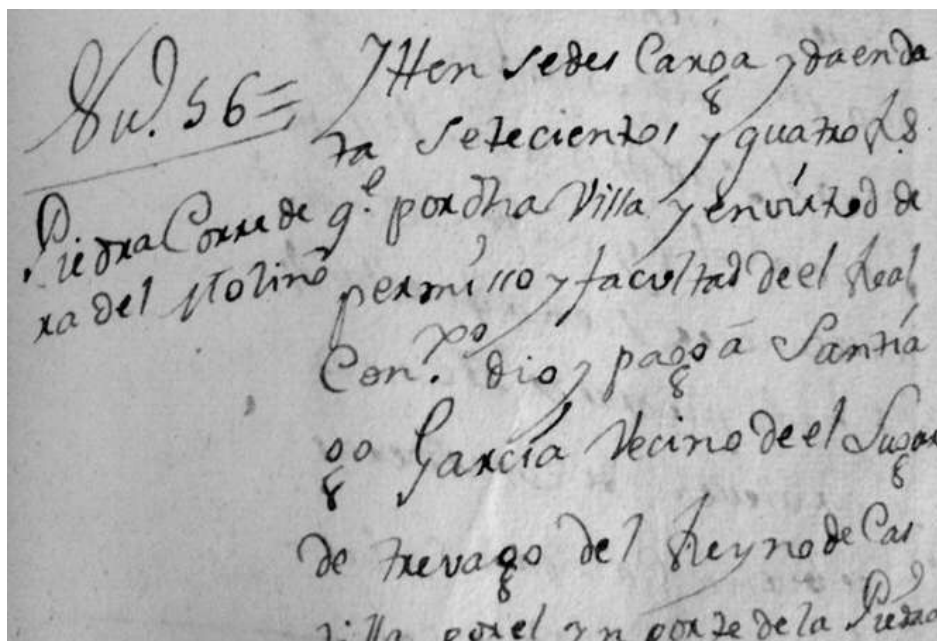 Nu.º 56=
Piedra Corre de
ra del Molino
Ytten sedes Carga y da en da
ta Setecientos y quatro Rs
q.e por dha Villa y en virtud de
permisso y facultad de el Real
Con.xo dio y pago a Santia
go Garcia Vecino de el Lugar
de trevago del Reyno de Cas
tilla por el ynporte de la Piedra